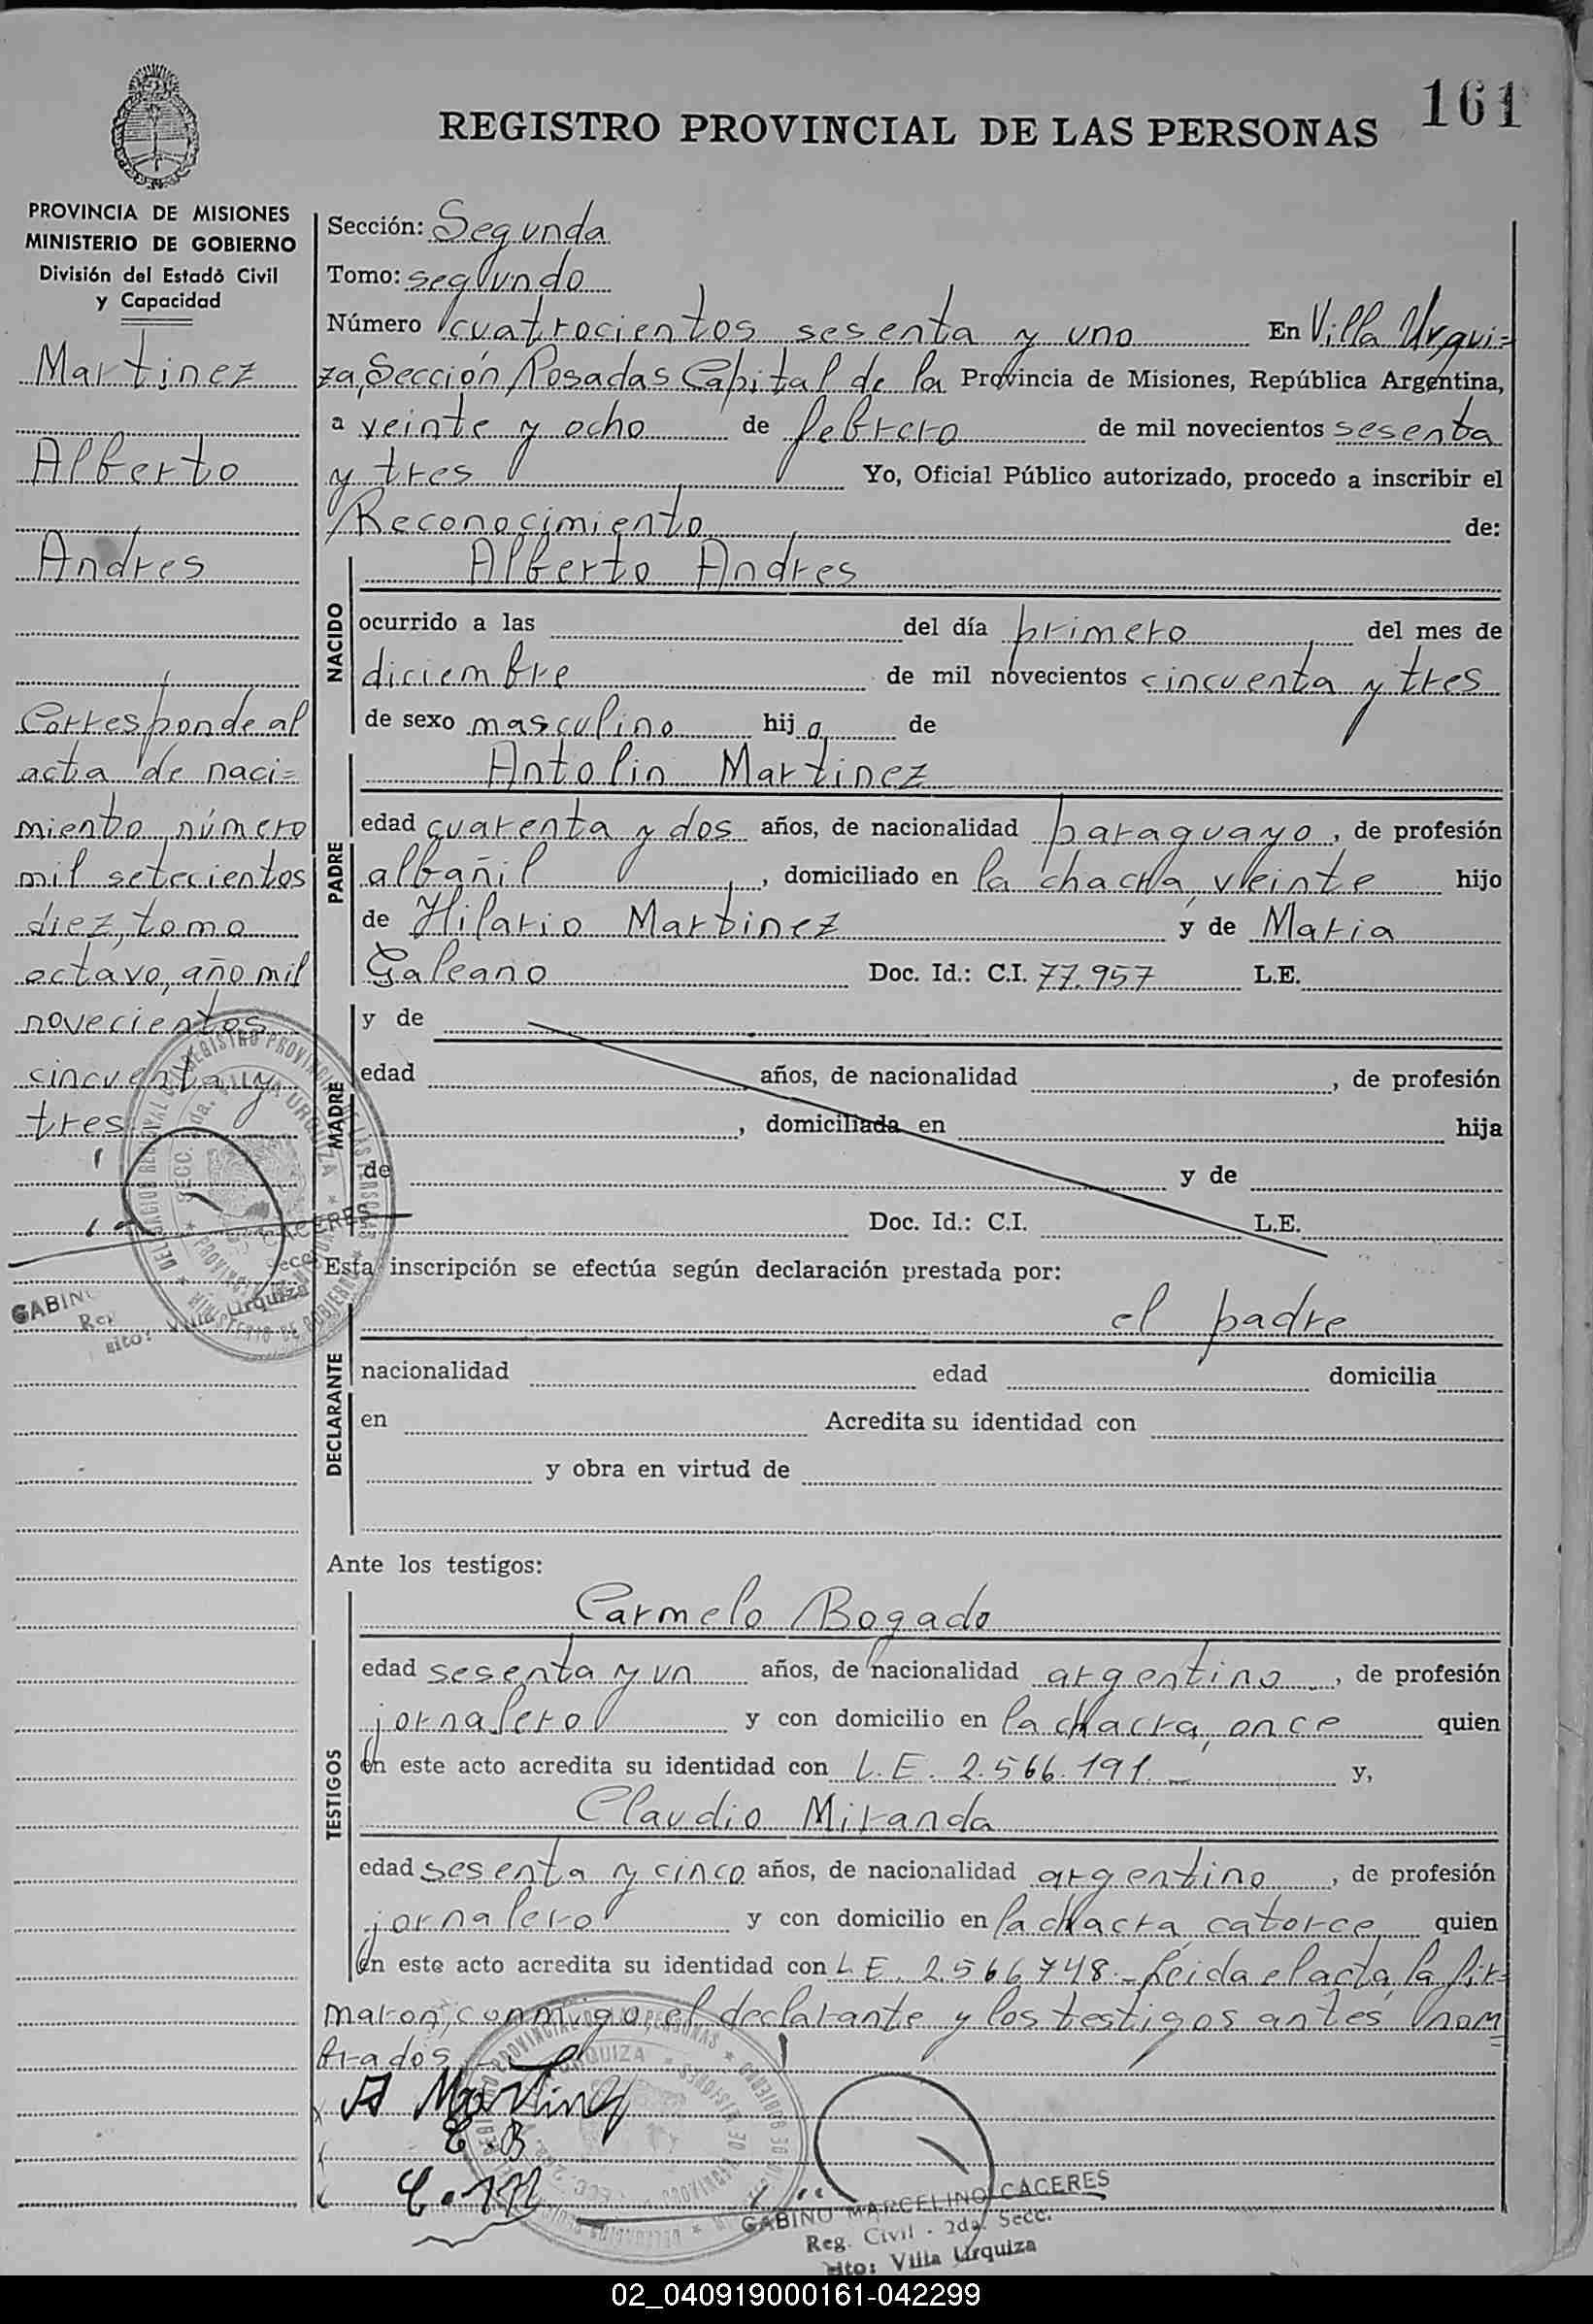 161
REGISTRO PROVINCIAL DE LAS PERSONAS
PROVINCIA DE MISIONES
MINISTERIO DE GOBIERNO
División del Estado Civil
y Capacidad
Martinez
Alberto
Andres
Corresponde al
acta de naci=
miento número
mil setecientos
diez, tomo
octavo, año mil
novecientos
cincuenta y
tres
Sección: Segunda
Tomo: segundo
Número cuatrocientos sesenta y uno En Villa Urqui=
za, Sección Posadas Capital de la Provincia de Misiones, República Argentina,
a veinte y ocho de febrero de mil novecientos sesenta
y tres Yo, Oficial Público autorizado, procedo a inscribir el
Reconocimiento de:
NACIDO
Alberto Andres
ocurrido a las del día primero del mes de
diciembre de mil novecientos cincuenta y tres
de sexo masculino hijo de
PADRE
Antolin Martinez
edad cuarenta y dos años, de nacionalidad paraguayo, de profesión
albañil, domiciliado en la chacra veinte hijo
de Hilario Martinez y de Maria
Galeano Doc. Id.: C.I. 77.957 L.E.
MADRE
y de
edad años, de nacionalidad , de profesión
, domiciliada en hija
de y de
Doc. Id.: C.I. L.E.
Esta inscripción se efectúa según declaración prestada por:
DECLARANTE
el padre
nacionalidad edad domicilia
en Acredita su identidad con
y obra en virtud de
Ante los testigos:
TESTIGOS
Carmelo Bogado
edad sesenta y un años, de nacionalidad argentino, de profesión
jornalero y con domicilio en la chacra, once quien
en este acto acredita su identidad con L.E. 2.566.191.- y,
Claudio Miranda
edad sesenta y cinco años, de nacionalidad argentino, de profesión
jornalero y con domicilio en la chacra catorce quien
en este acto acredita su identidad con L E. 2.566,748.- Leida el acta, la fir=
maron, conmigo, el declarante y los testigos antes nom=
brados.-
A Martinez
C.B
C.M
GABINO MARCELINO CACERES
Reg. Civil - 2da. Secc.
Villa Urquiza
02_040919000161-042299